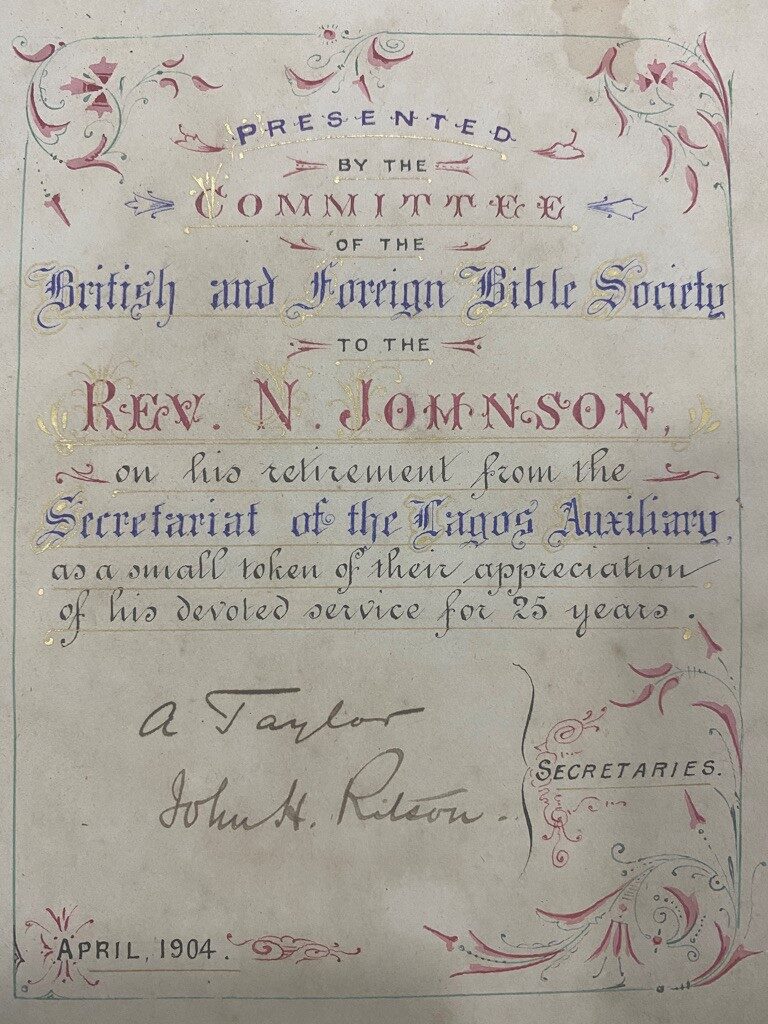 PRESENTED
BY THE
COMMITTEE
OF THE
British and Foreign Bible Society
TO THE
REV. N. JOHNSON,
on his retirement from the
Secretariat of the Lagos Auxiliary,
as a small token of their appreciation
of his devoted service for 25 years.
A Taylor
John H. Ritson.
SECRETARIES.
APRIL, 1904.